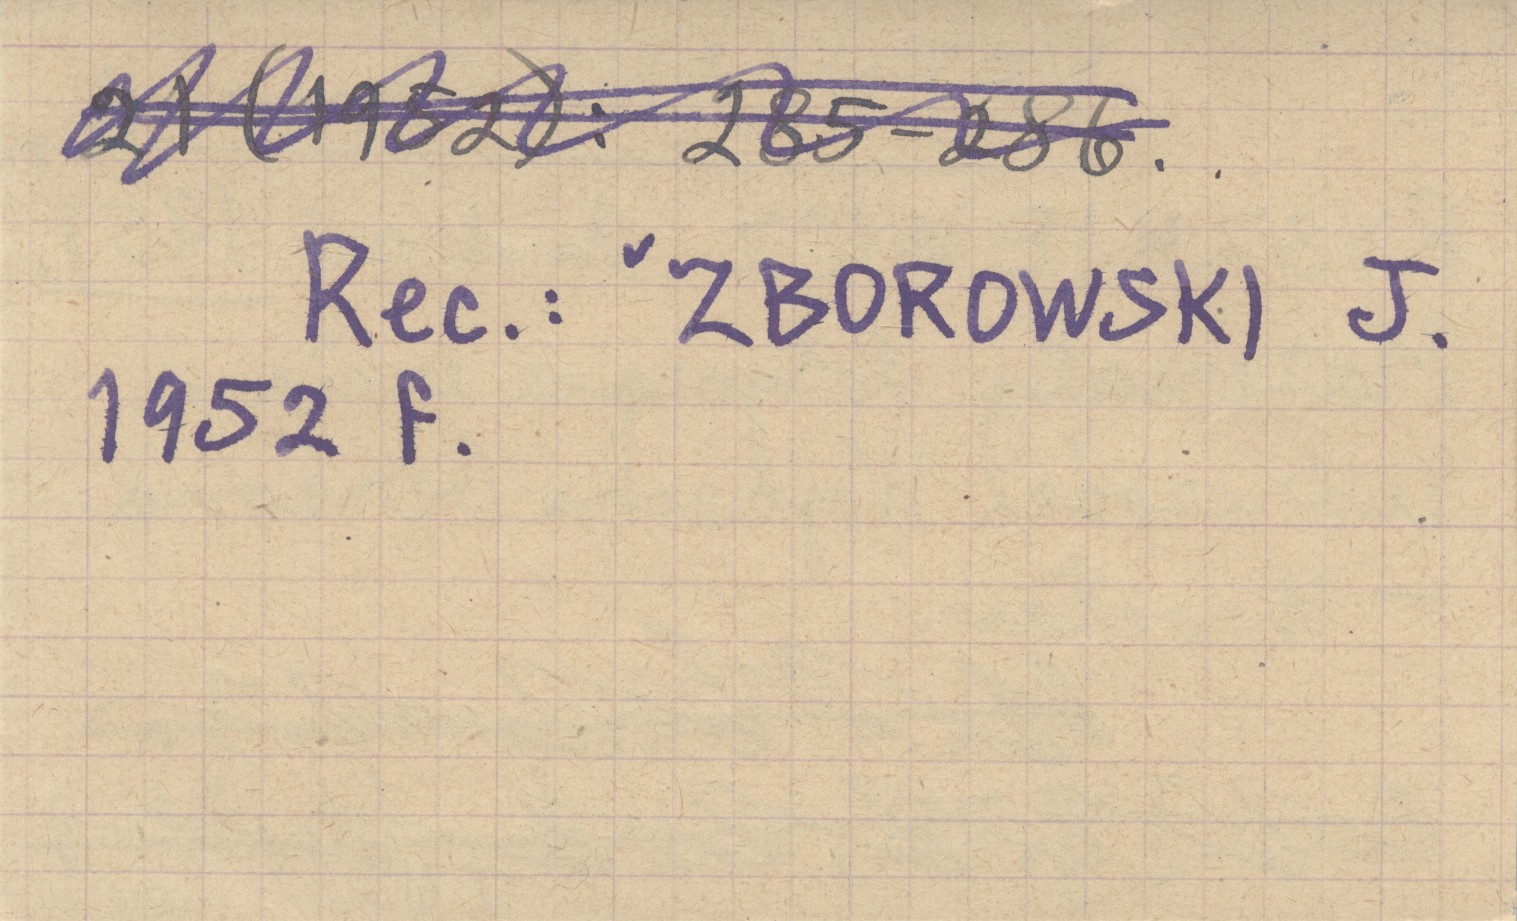 21 (1952): 285-286.
Rec.: ✓ZBOROWSKI J.
1952 f.